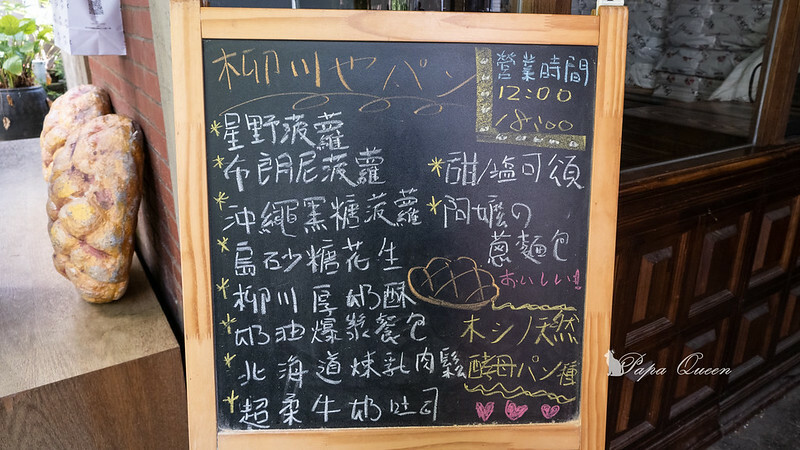 柳川やパン
営業時間
12:00
18:00
*星野菠蘿
*布朗尼菠蘿
*沖繩黑糖菠蘿
*烏砂糖花生
*柳川厚奶酥
*奶油爆漿餐包
*北海道煉乳肉鬆
*超柔牛奶吐司
*甜/塩可頌
*阿嬤の
蔥麵包
おいしい!!
ホシノ天然
酵母パン種
Papa Queen